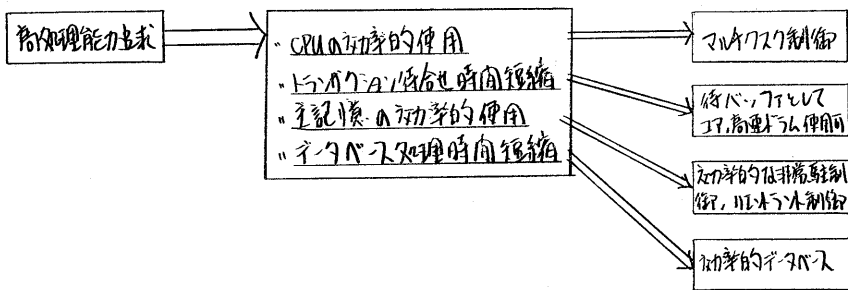 高処理能力追求
・CPUの効率的使用
・トランザクション待合せ時間短縮
・主記憶の効率的使用
・データベース処理時間短縮
マルチタスク制御
待バッファとして
コア,高速ドラム使用可
効率的な非常駐制
御,リエントラント制御
効率的データベース